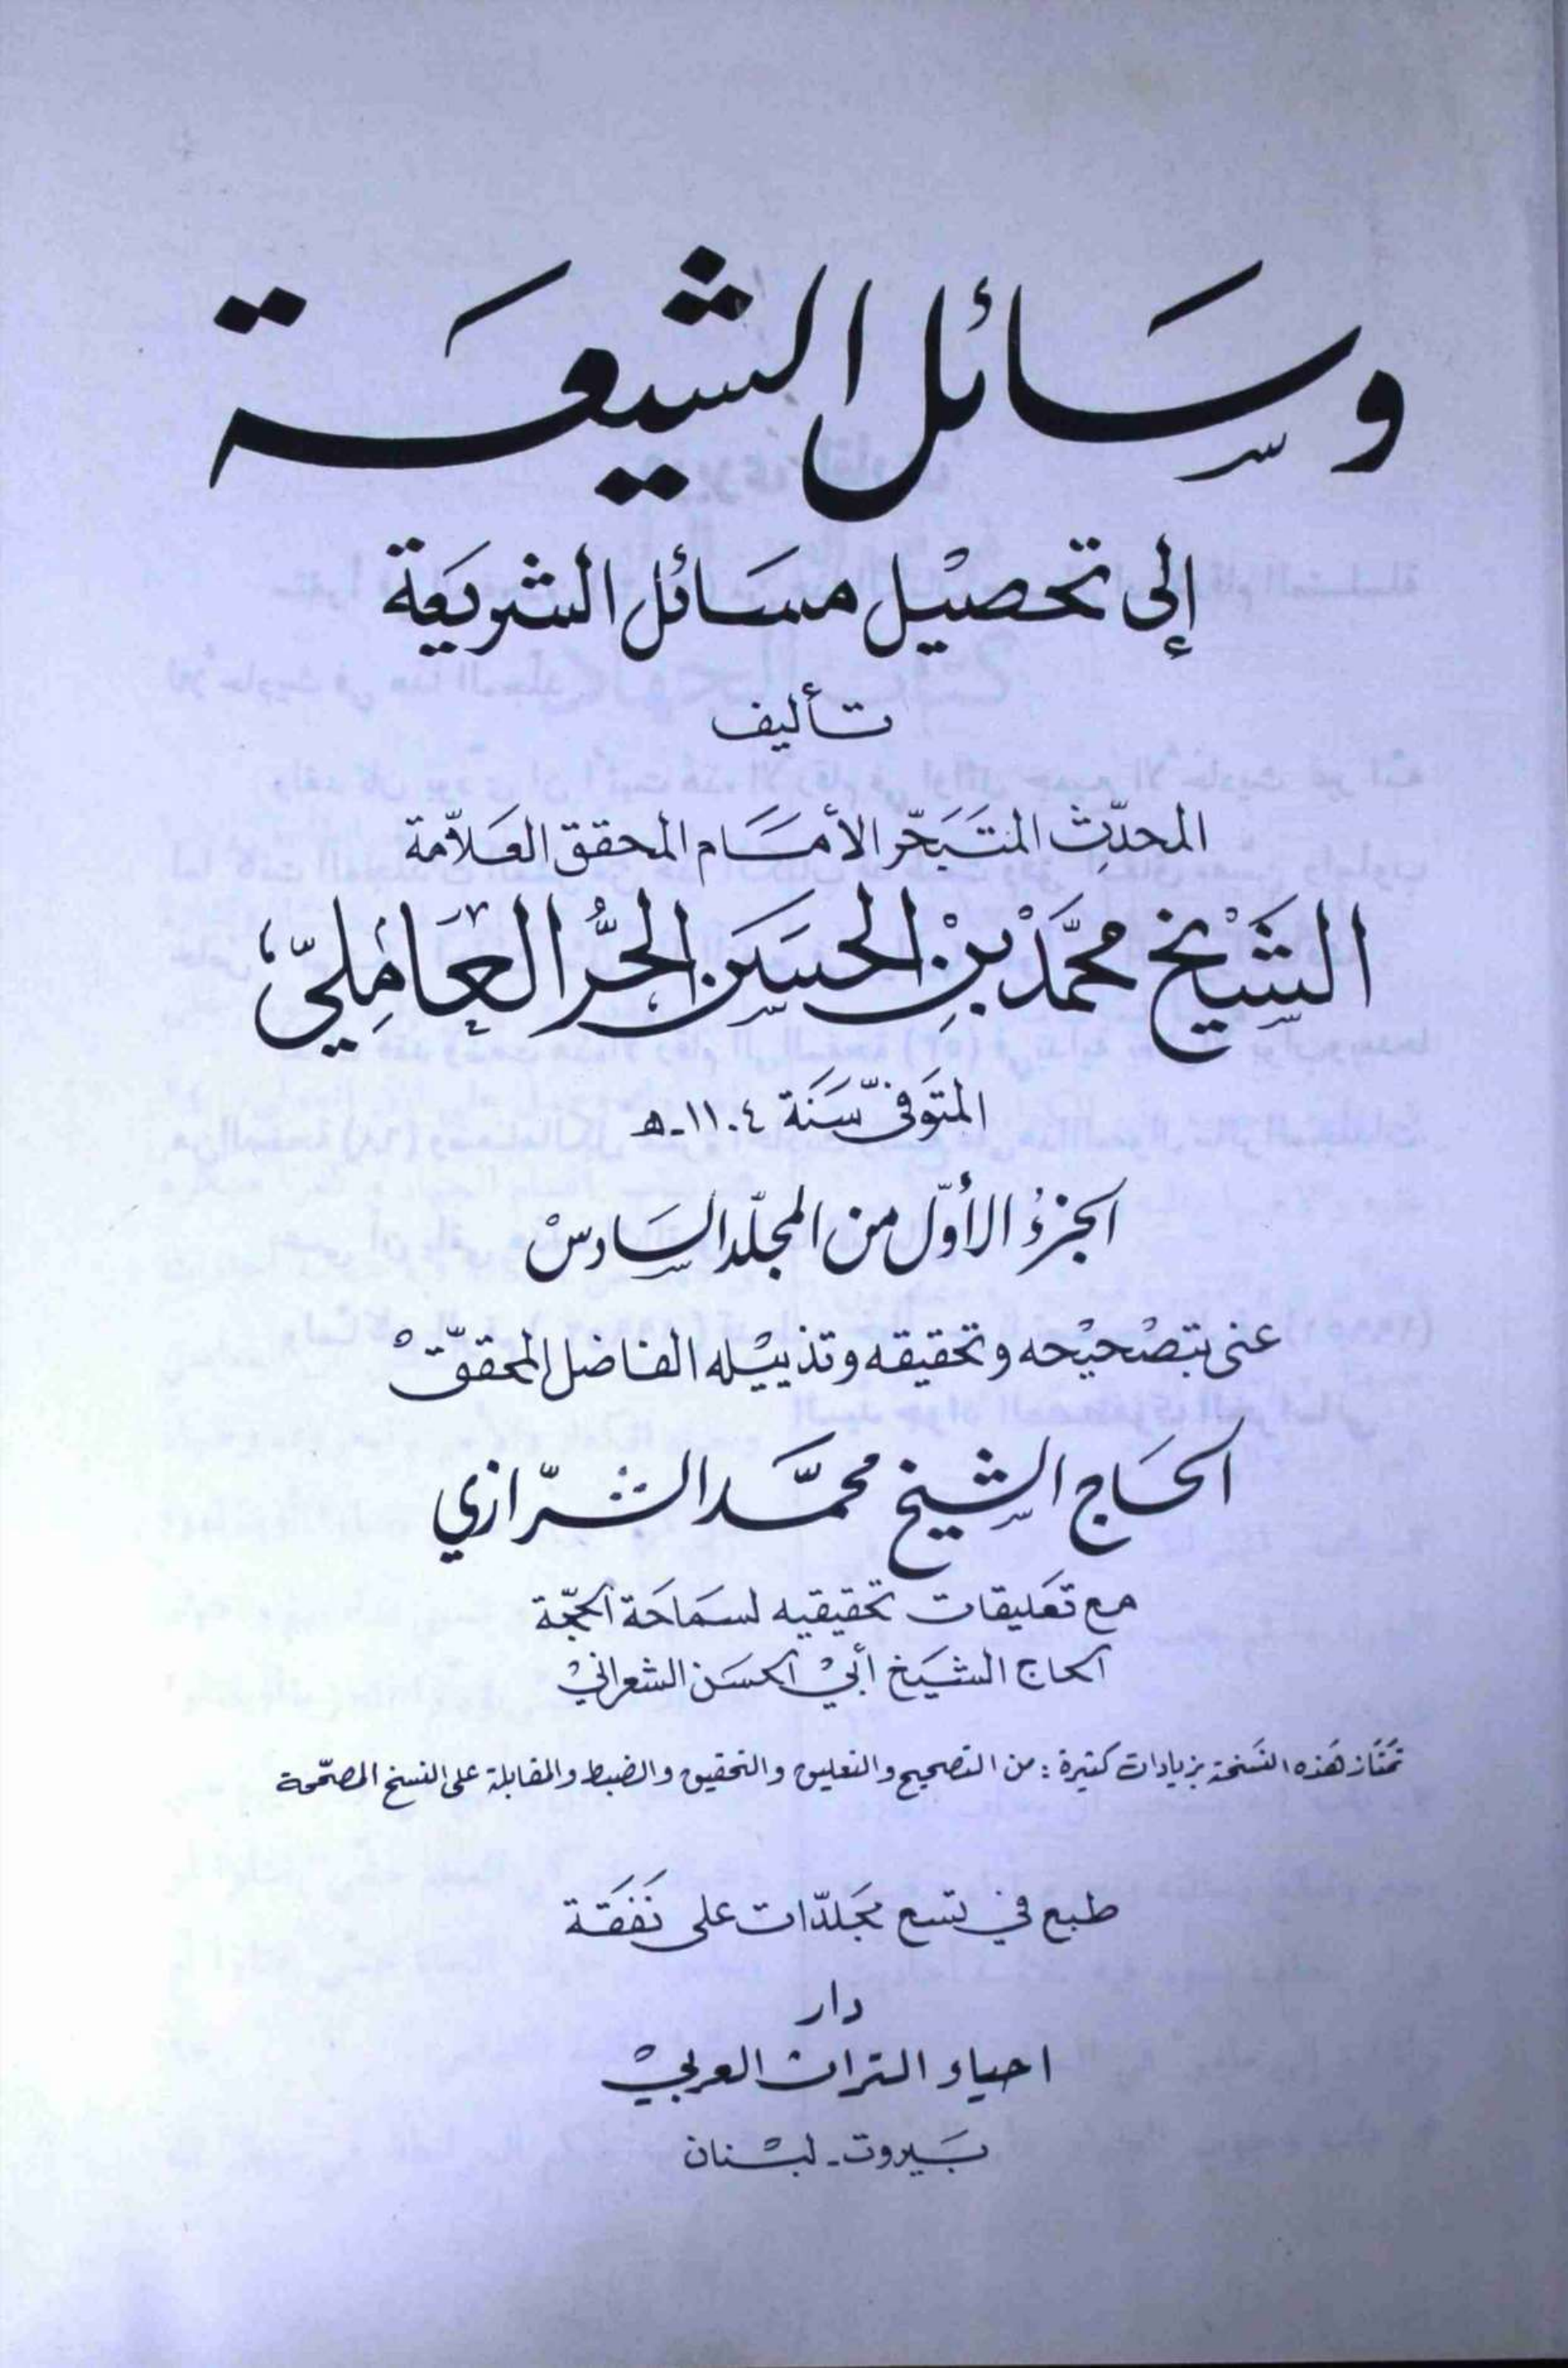 وسائل الشيعة
إلى تحصيل مسائل الشريعة
تأليف
المحدّث المتبحّر الأمام المحقق العلاّمة
الشيخ محمّد بن الحسن الحرّ العامليّ؛
المتوفىّ سنة ١١٠٤ـه
الجزء الأوّل من المجلّد السادس
عنى بتصحيحه وتحقيقه وتذييله الفاضل المحقّق
الحاج الشيخ محمّد الرّازي
مع تعليقات تحقيقيه لسماحة الحجّة
الحاج الشيخ أبي الحسن الشعراني
تمتاز هذه النسخة بزيادات كثيرة : من التصحيح والتعليق والتحقيق والضبط والمقابلة على النسخ المصحّحة
طبع في تسع مجلدّات على نفقة
دار
احياء التراث العربي
بيروت ـ لبنان